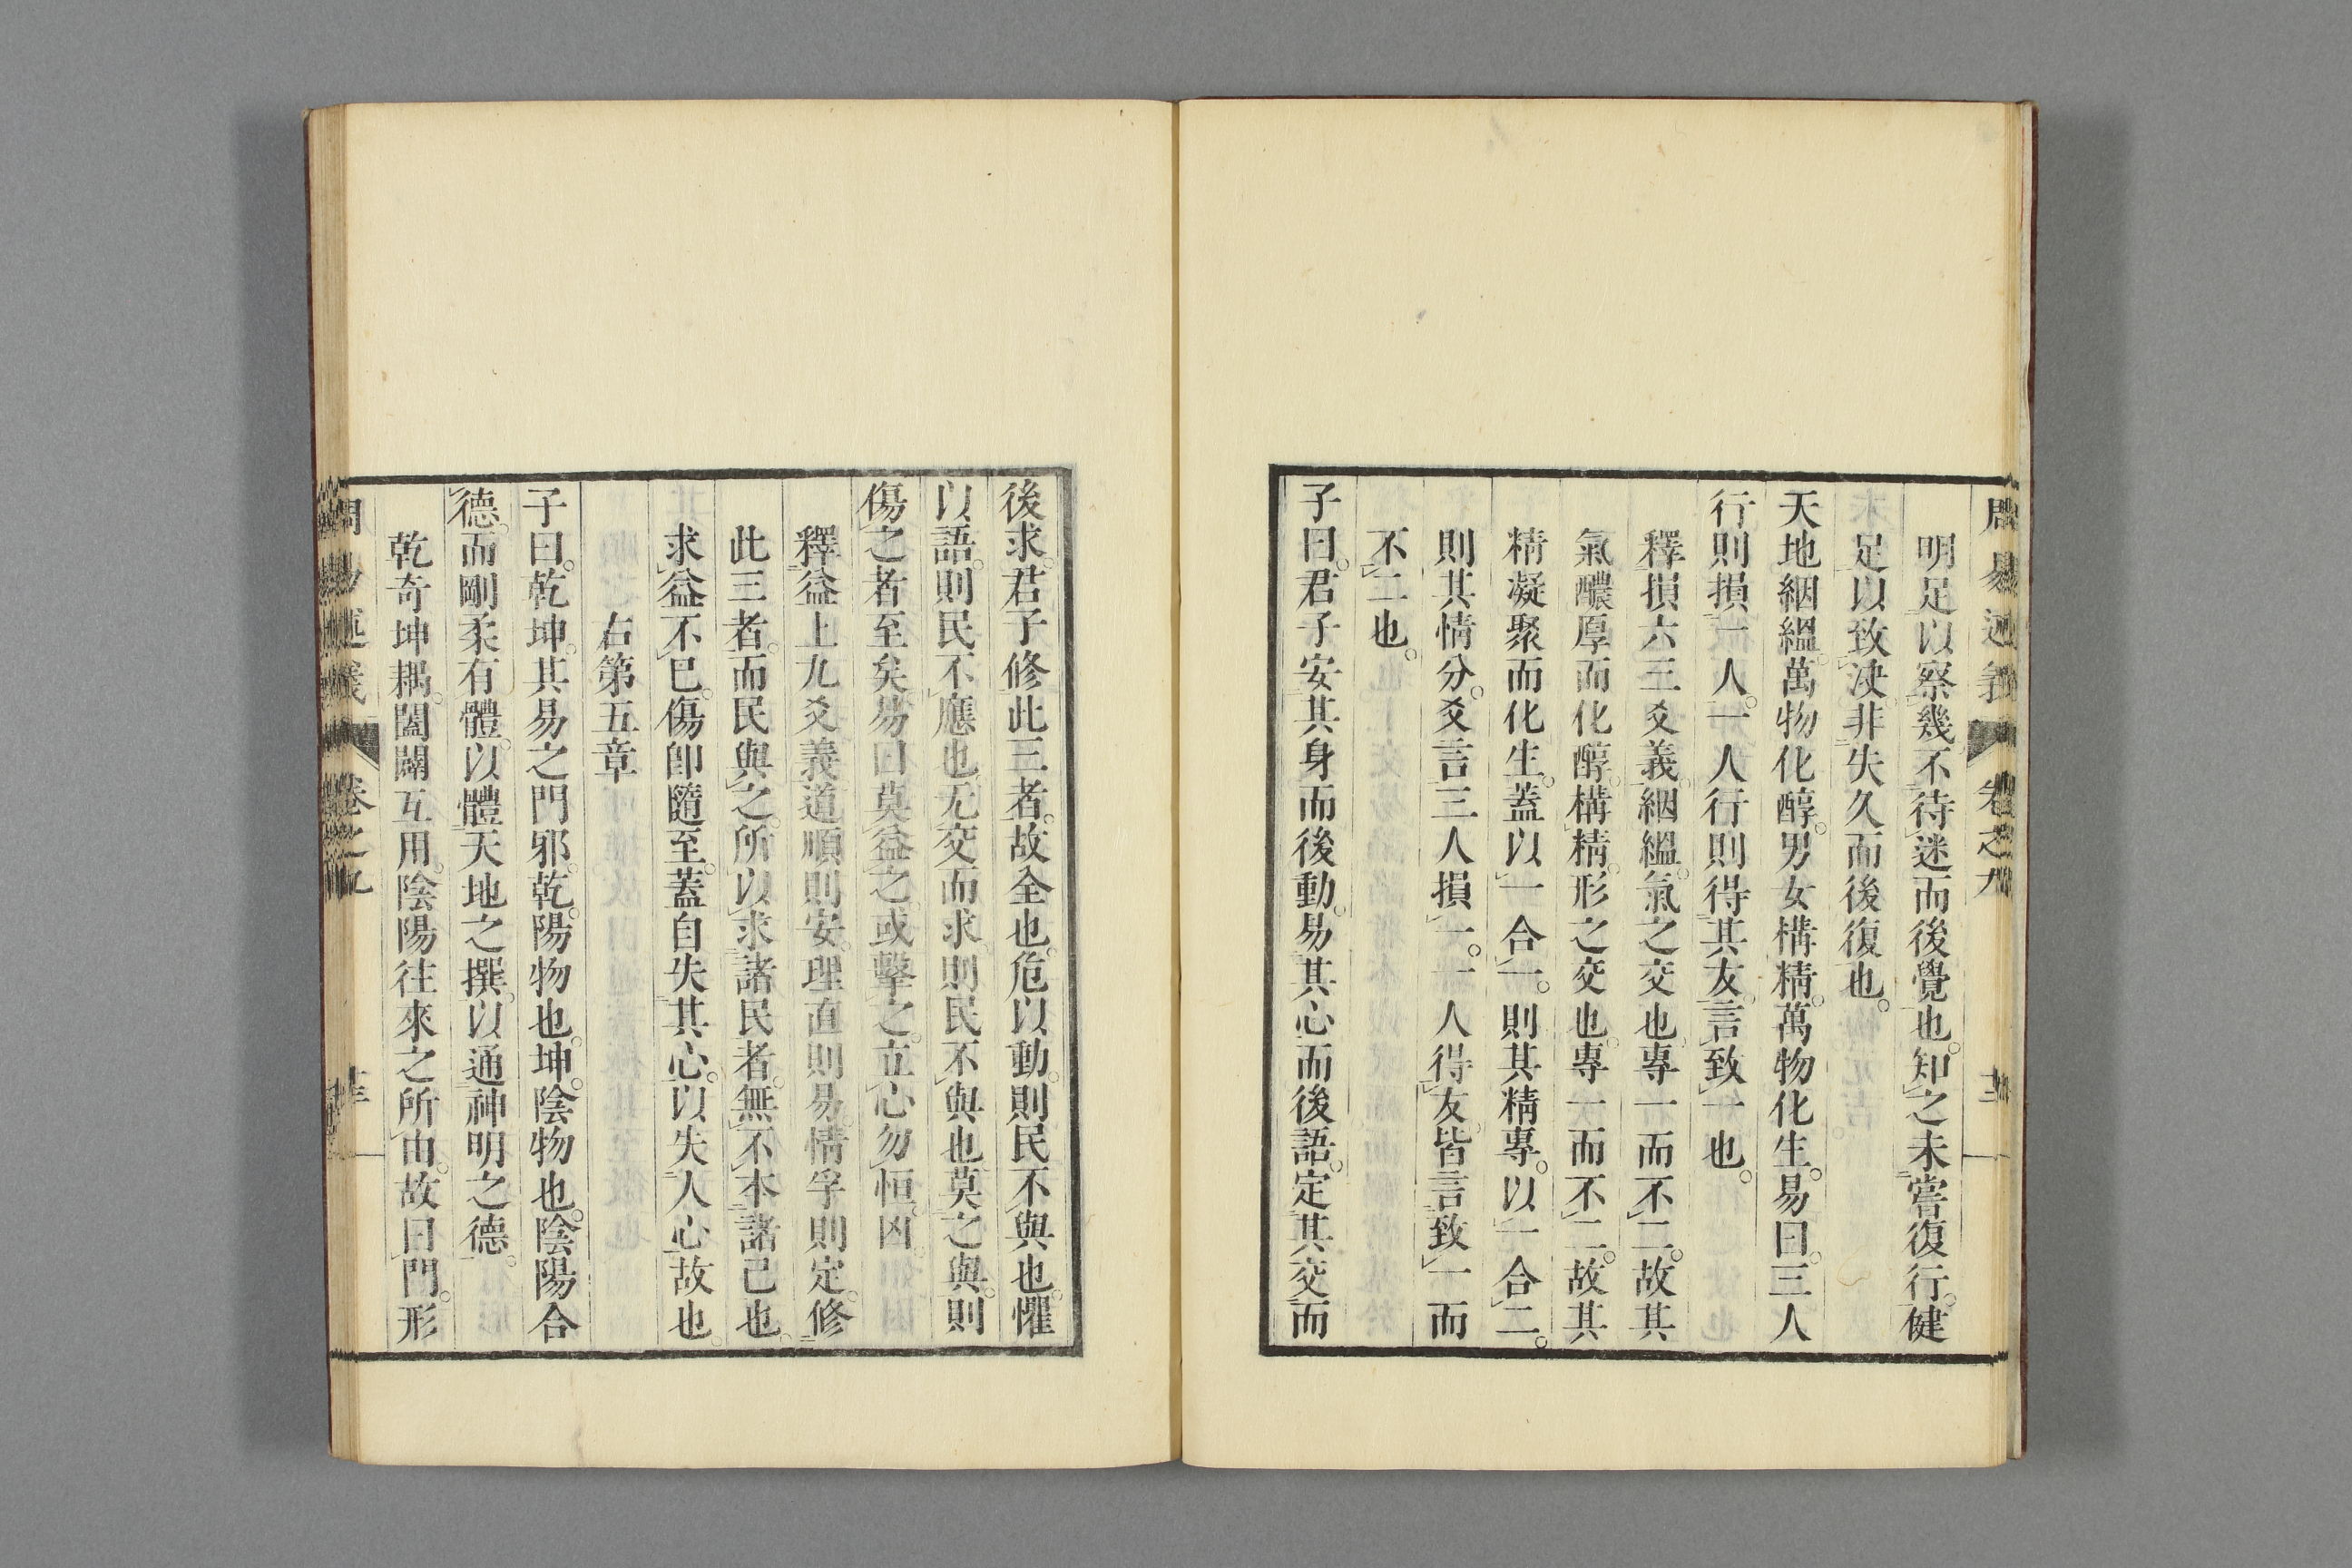 周易述義 卷之九
明足以察幾不待迷而後覺也。知之未嘗復行。健
足以致决。非失久而後復也。
天地絪縕。萬物化醇。男女構精。萬物化生。易曰。三人
行則損一人。一人行則得其友。言致一也。
釋損六三爻義。絪縕。氣之交也。專一而不二。故其
氣醲厚而化醇。構精。形之交也。專一而不二。故其
精凝聚而化生。蓋以一合一。則其精專。以一合二。
則其情分。爻言三人損一。一人得友。皆言致一而
不二也。
子曰。君子安其身而後動。易其心而後語。定其交而
後求。君子修此三者。故全也。危以動。則民不與也。懼
以語。則民不應也。无交而求。則民不與也。莫之與。則
傷之者至矣。易曰。莫益之。或擊之。立心勿恒。凶。
釋益上九爻義。道順則安。理直則易。情孚則定。修
此三者。而民與之。所以求諸民者。無不本諸己也。
求益不已。傷卽隨至。蓋自失其心。以失人心故也。
右第五章
子曰。乾坤。其易之門邪。乾。陽物也。坤。陰物也。陰陽合
德。而剛柔有體。以體天地之撰。以通神明之德。
乾奇坤耦。闔闢互用。陰陽往來之所由。故曰門。形
卷之九